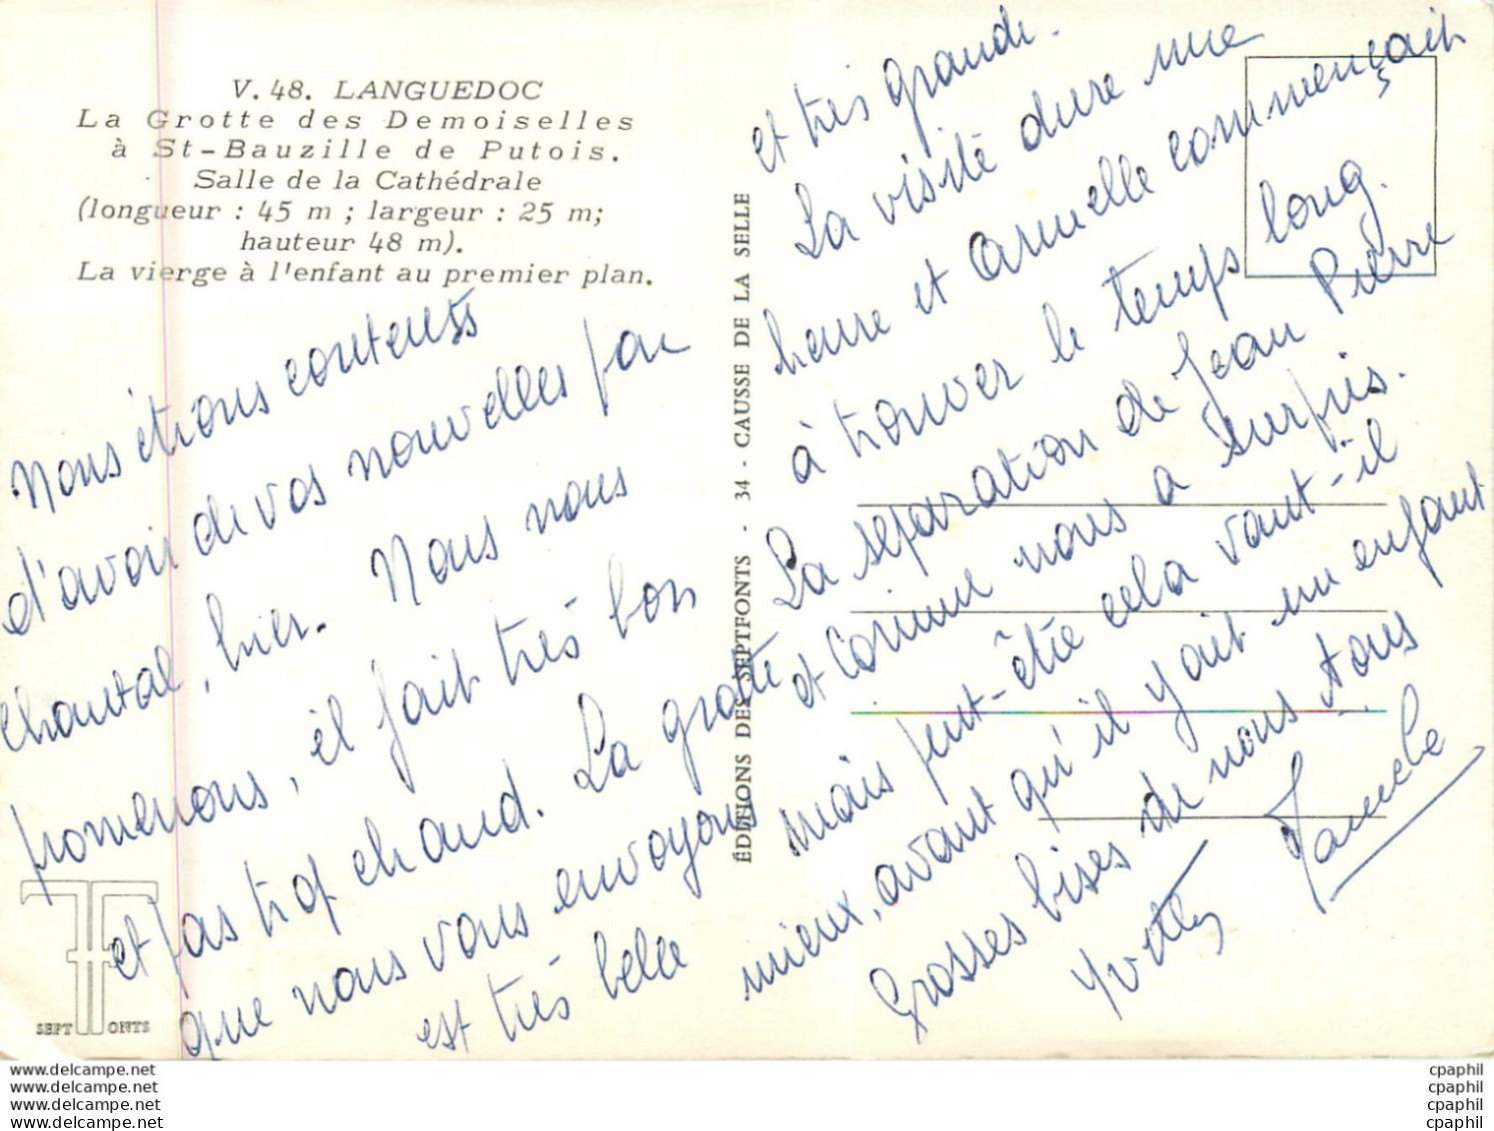 V. 48. LANGUEDOC
La Grotte des Demoiselles
à St-Bauzille de Putois.
Salle de la Cathédrale
(longueur : 45 m ; largeur : 25 m;
hauteur 48 m).
La vierge à l'enfant au premier plan.
Nous étions contents
d'avoir de vos nouvelles par
chantal, hier. Nous nous
promenons, il fait très bon
et pas trop chaud. La grotte
que nous vous envoyons
est très belle
et très grande.
La visite dure une
heure et Armelle commençait
à trouver le temps long.
La séparation de Jean Pierre
et Corinne nous a surpris.
mais peut-être cela vaut-il
mieux, avant qu'il y ait un enfant
Grosses bises de nous tous
ÉDITIONS DES SEPTFONTS - 34 - CAUSSE DE LA SELLE
SEPT FONTS
www.delcampe.net
www.delcampe.net
www.delcampe.net
www.delcampe.net
cpaphil
cpaphil
cpaphil
cpaphil